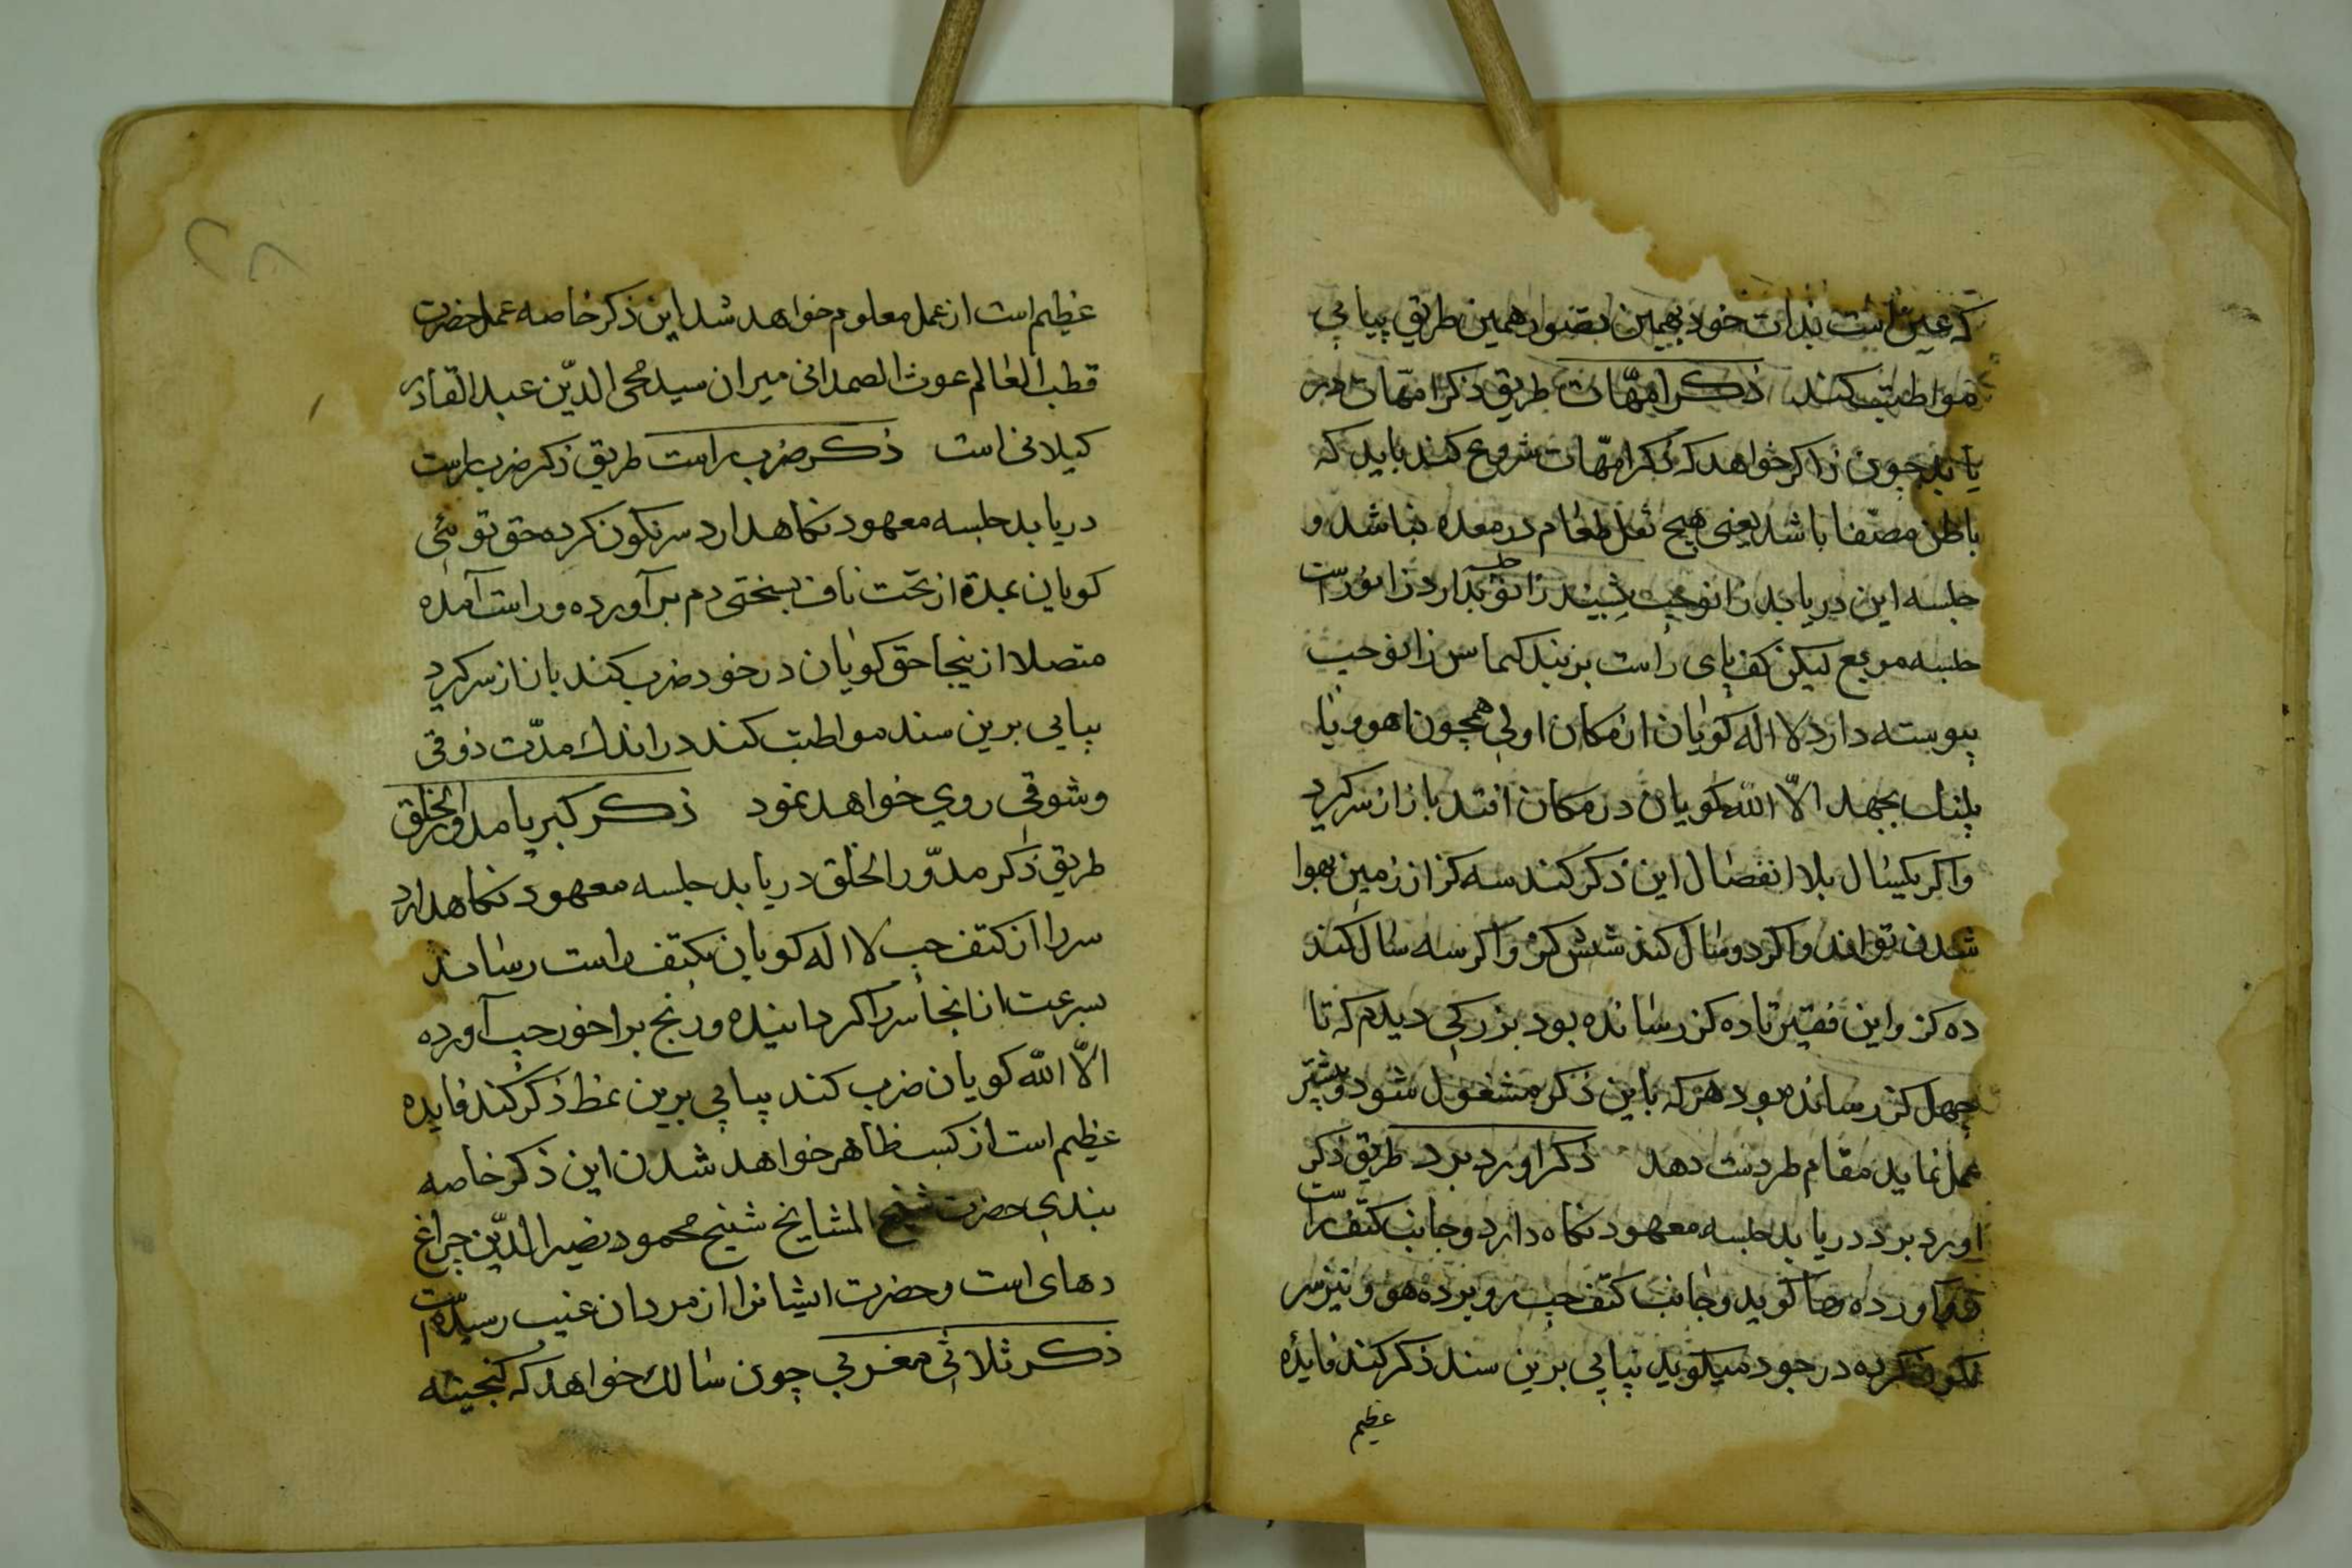 که عین است بذات خود بهمین تصور همین طریق پیاپی
مواظبت کند ذکر امهّات طریق ذکر امهّات در
یابد چون ذاکر خواهد که ذکر امهّات شروع کند باید که
باطن مصفا باشد یعنی هیچ ثقل طعام در معده نباشد و
جلسه این دریابد زانو چپ زانو بدارد زانو راست
جلسه مربع لیکن کف پای راست بزیند کماس زانو چپ
پیوسته دارد لا اله کویان از مکان اولی همچون اهو و یا
پلنک بجهد الّا اللّه کویان در مکان افتد باز از سر کیرد
و اکر یکسال بلا انفصال این ذکر کند سه کز از زمین بهوا
شدن تواند و اکر دو سال کند شش کز و اکر سه سال کند
ده کز و این فقیر تا ده کز رسانده بود بزرکی دیدم که تا
چهل کز رسانده بود هر که باین ذکر مشغول شود و بیشتر
عمل نماید مقام طر دست دهد ذکر اورد برد طریق ذکر
اورد برد دریابد جلسه معهود نکاه دارد و جانب کتف راست
اورده ها کوید و جانب کتف چپ رو برده هو و نیز سر
نکون کرده در خود میکوید پیاپی برین سند ذکر کند فایدٔه
عظیم
عظیم است از عمل معلوم خواهد شد این ذکر خاصه عمل حضرت
قطب العالم غوث الصمدانی میران سید محی الدّین عبد القادر
کیلانی است ذکر ضرب راست طریق ذکر ضرب راست
دریابد جلسه معهود نکاهدارد سر نکون کرده حق توئی
کویان بمدة از تحت ناف بسختی دم برآورده و راست آمده
متصلا از ینجا حق کویان در خود ضرب کند باز از سر کیرد
پیاپی برین سند مواظبت کند در اندک مدّت ذوقی
و شوقی روی خواهد نمود ذکر کبریا مدور الخلق
طریق ذکر مدوّر الخلق دریابد جلسه معهود نکاهدارد
سر را از کتف چپ لا اله کویان بکتف راست رساند
بسرعت از انجا سر را کردانیده و رنج برا خور چپ آورده
الّا اللّه کویان ضرب کند پیاپی برین نمط ذکر کند فایده
عظیم است از کسب ظاهر خواهد شدن این ذکر خاصه
بندی حضرت شیخ المشایخ شیخ محمود نصیر الدّین چراغ
دهلی است و حضرت ایشانرا از مردان غیب رسیده است
ذکر ثلاثی مغربی چون سالک خواهد که کنجینه